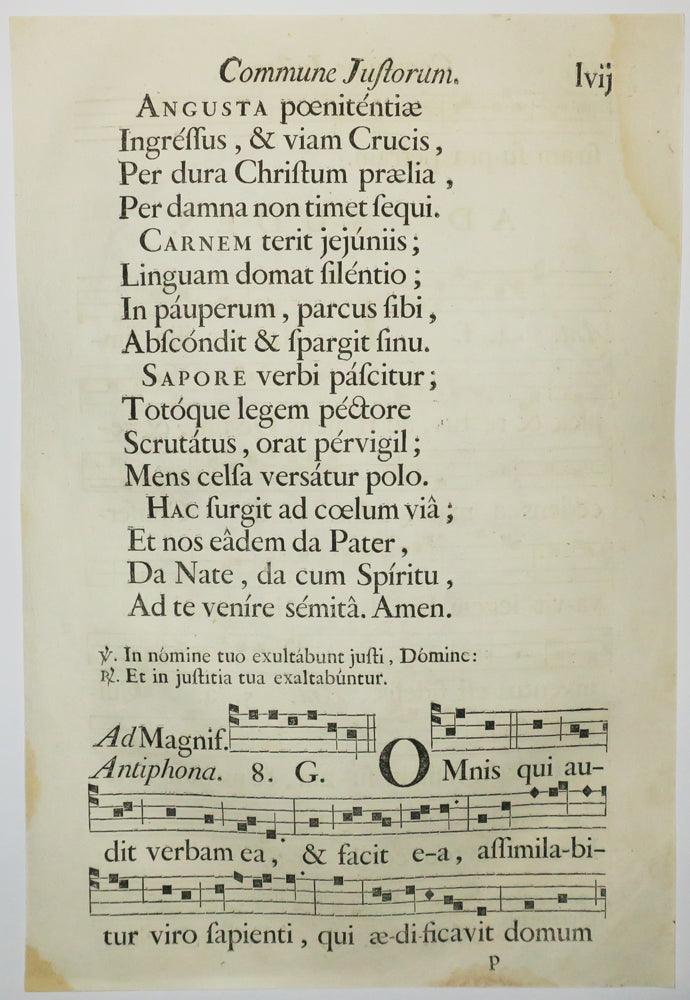 Commune Juſtorum. lvij
ANGUSTA pœniténtiæ
Ingréſſus, & viam Crucis,
Per dura Chriſtum prælia,
Per damna non timet ſequi.
CARNEM terit jejúniis;
Linguam domat ſiléntio;
In páuperum, parcus ſibi,
Abſcóndit & ſpargit ſinu.
SAPORE verbi páſcitur;
Totóque legem péctore
Scrutátus, orat pérvigil;
Mens celſa versátur polo.
HAC ſurgit ad cœlum viâ;
Et nos eâdem da Pater,
Da Nate, da cum Spíritu,
Ad te veníre sémitâ. Amen.
℣. In nómine tuo exultábunt juſti, Dómine:
℟. Et in juſtitia tua exaltabúntur.
Ad Magnif.
Antiphona. 8. G. OMnis qui au-
dit verbam ea, & facit e-a, aſſimila-bi-
tur viro ſapienti, qui æ-di-ficavit domum
p